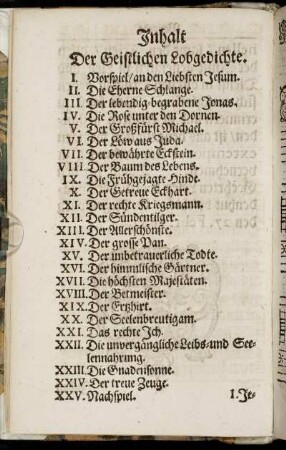 Inhalt
Der Geistlichen Lobgedichte.
I. Vorspiel/an den Liebsten Jesum.
II. Die Eherne Schlange.
III. Der lebendig-begrabene Jonas.
IV. Die Rose unter den Dornen.
V. Der Großfürst Michael.
VI. Der Löw aus Juda.
VII. Der bewährte Eckstein.
VIII. Der Baum des Lebens.
IX. Die Frühgejagte Hinde.
X. Der Getreue Eckhart.
XI. Der rechte Kriegsmann.
XII. Der Sündentilger.
XIII. Der Allerschönste.
XIV. Der grosse Pan.
XV. Der unbetrauerliche Todte.
XVI. Der himmlische Gärtner.
XVII. Die höchsten Majestäten.
XVIII. Der Betmeister.
XIX. Der Ertzhirt.
XX. Der Seelenbreutigam.
XXI. Das rechte Ich.
XXII. Die unvergängliche Leibs-und See-
lennahrung.
XXIII. Die Gnadensonne.
XXIV. Der treue Zeuge.
XXV. Nachspiel. I. Je-